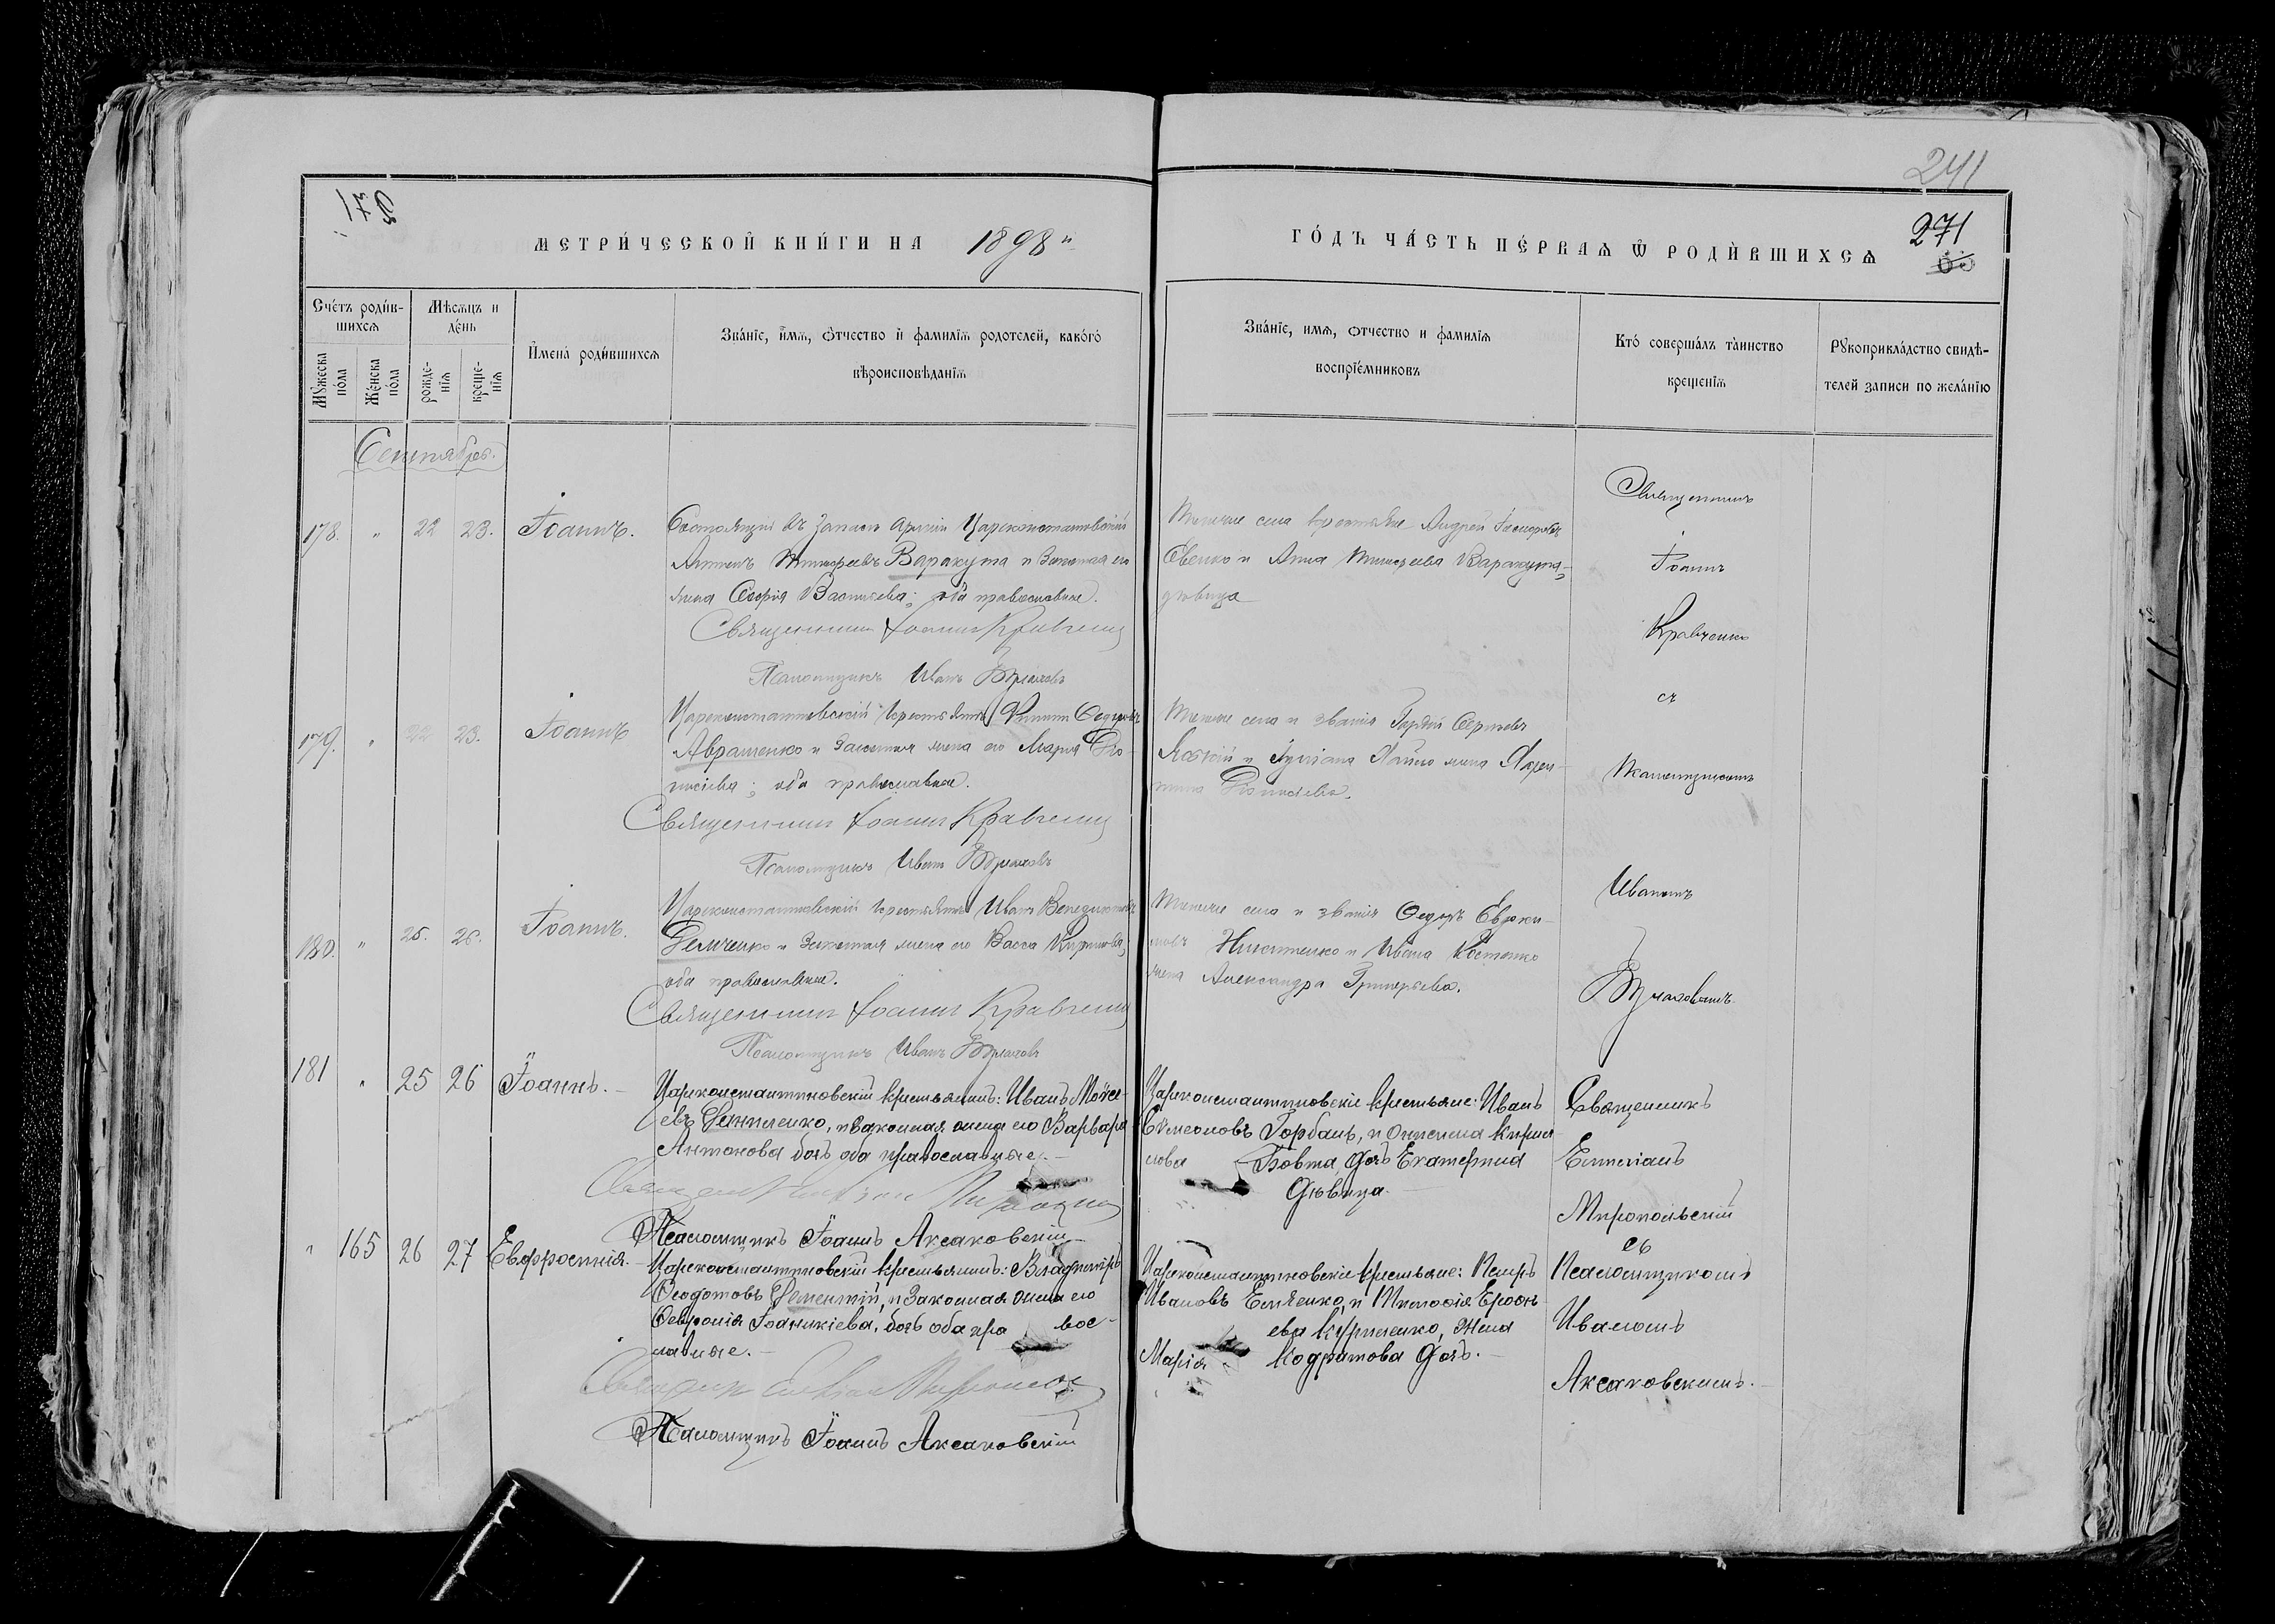 241
271
271
МЕТРИ́ЧЕСКОЙ КНИ́ГИ НА 1898 й
ГО́ДЪ ЧА́СТЬ ПЕ́РВАѦ Ѿ РОДИ́ВШИХСѦ
Сче́тъ роди́в-
шихсѧ
Мѣсѧцъ и
де́нь
Мꙋ́жеска
по́ла
Же́нска
по́ла
рожде-
нїѧ
креще-
нїѧ
И҆мена̀ роди́вшихсѧ
Зва́нїе, и҆́мѧ, ѻ҆́тчество и҆ фамилїѧ родотелей, како́гѡ
вѣроисповѣ́данїѧ
Зва́нїе, имѧ, ѻтчество и фамилїѧ
воспрїе́мниковъ
Кто̀ соверша́лъ та́инство
крещенїѧ
Рꙋкоприкла́дство свидѣ-
телей записи по жела́нїю
Сентябрь.
178. " 22 23. Іоаннъ.
Состоящій въ запасѣ арміи Цареконстантиновскій
Тимофеевъ Варакута и законная его
жена Софія Васильева; оба православные.
Священникъ Іоаннъ Кравченко
Псаломщикъ Иванъ
Тогоже села крестьяне Андрей
Евенко и Анна Тимофеева Варакута,
дѣвица
Священникъ
Іоаннъ
Кравченко
съ
Псаломщикомъ
Иваномъ
179. " 22 23. Іоаннъ
Цареконстантиновскій крестьянинъ Филиппъ
Авраменко и законная жена его Марія Діо-
нисіева; оба православные.
Священникъ Іоаннъ Кравченко
Псаломщикъ Иванъ
Тогоже села и званія Гордій Сергѣевъ
180. " 25. 26. Іоаннъ.
Цареконстантиновскій крестьянинъ Иванъ Венедиктовъ
Демченко и законная жена его Васса Кириллова;
оба православные.
Священникъ Іоаннъ Кравченко
Псаломщикъ Иванъ
Тогоже села и званія Федоръ Евфки-
мовъ Никитенко и Ивана Костенко
жена Александра Григорьева.
181 " 25 26 Іоаннъ.-
Царконстантиновскій крестьянинъ: Иванъ Моѵсе-
евъ Даниленко, и законная жена его Варвара
Антонова дочь оба православные.-
Псаломщикъ Іоаннъ Аксаковскій
Царконстантиновскіе крестьяне: Иванъ
Симеоновъ Горбань, и Кирил-
лова Бовта, дочь Екатерина
Дѣвица.-
Священникъ
Емиліанъ
Миропольскій
съ
Псаломщикомъ
Иваномъ
Аксаковскимъ.
" 165 26 27 Евфросинія.-
Царконстантиновскій крестьянинъ: Владиміръ
Феодотовъ Дементій, и законная жена его
Февронія Іоанникіева, дочь оба пра вос-
лавные.-
Псаломщикъ Іоаннъ Аксаковскій
Царконстантиновскіе крестьяне: Петръ
Ивановъ Емченко, и
ева Куриленко, жена
Марія Кодратова дочь.-